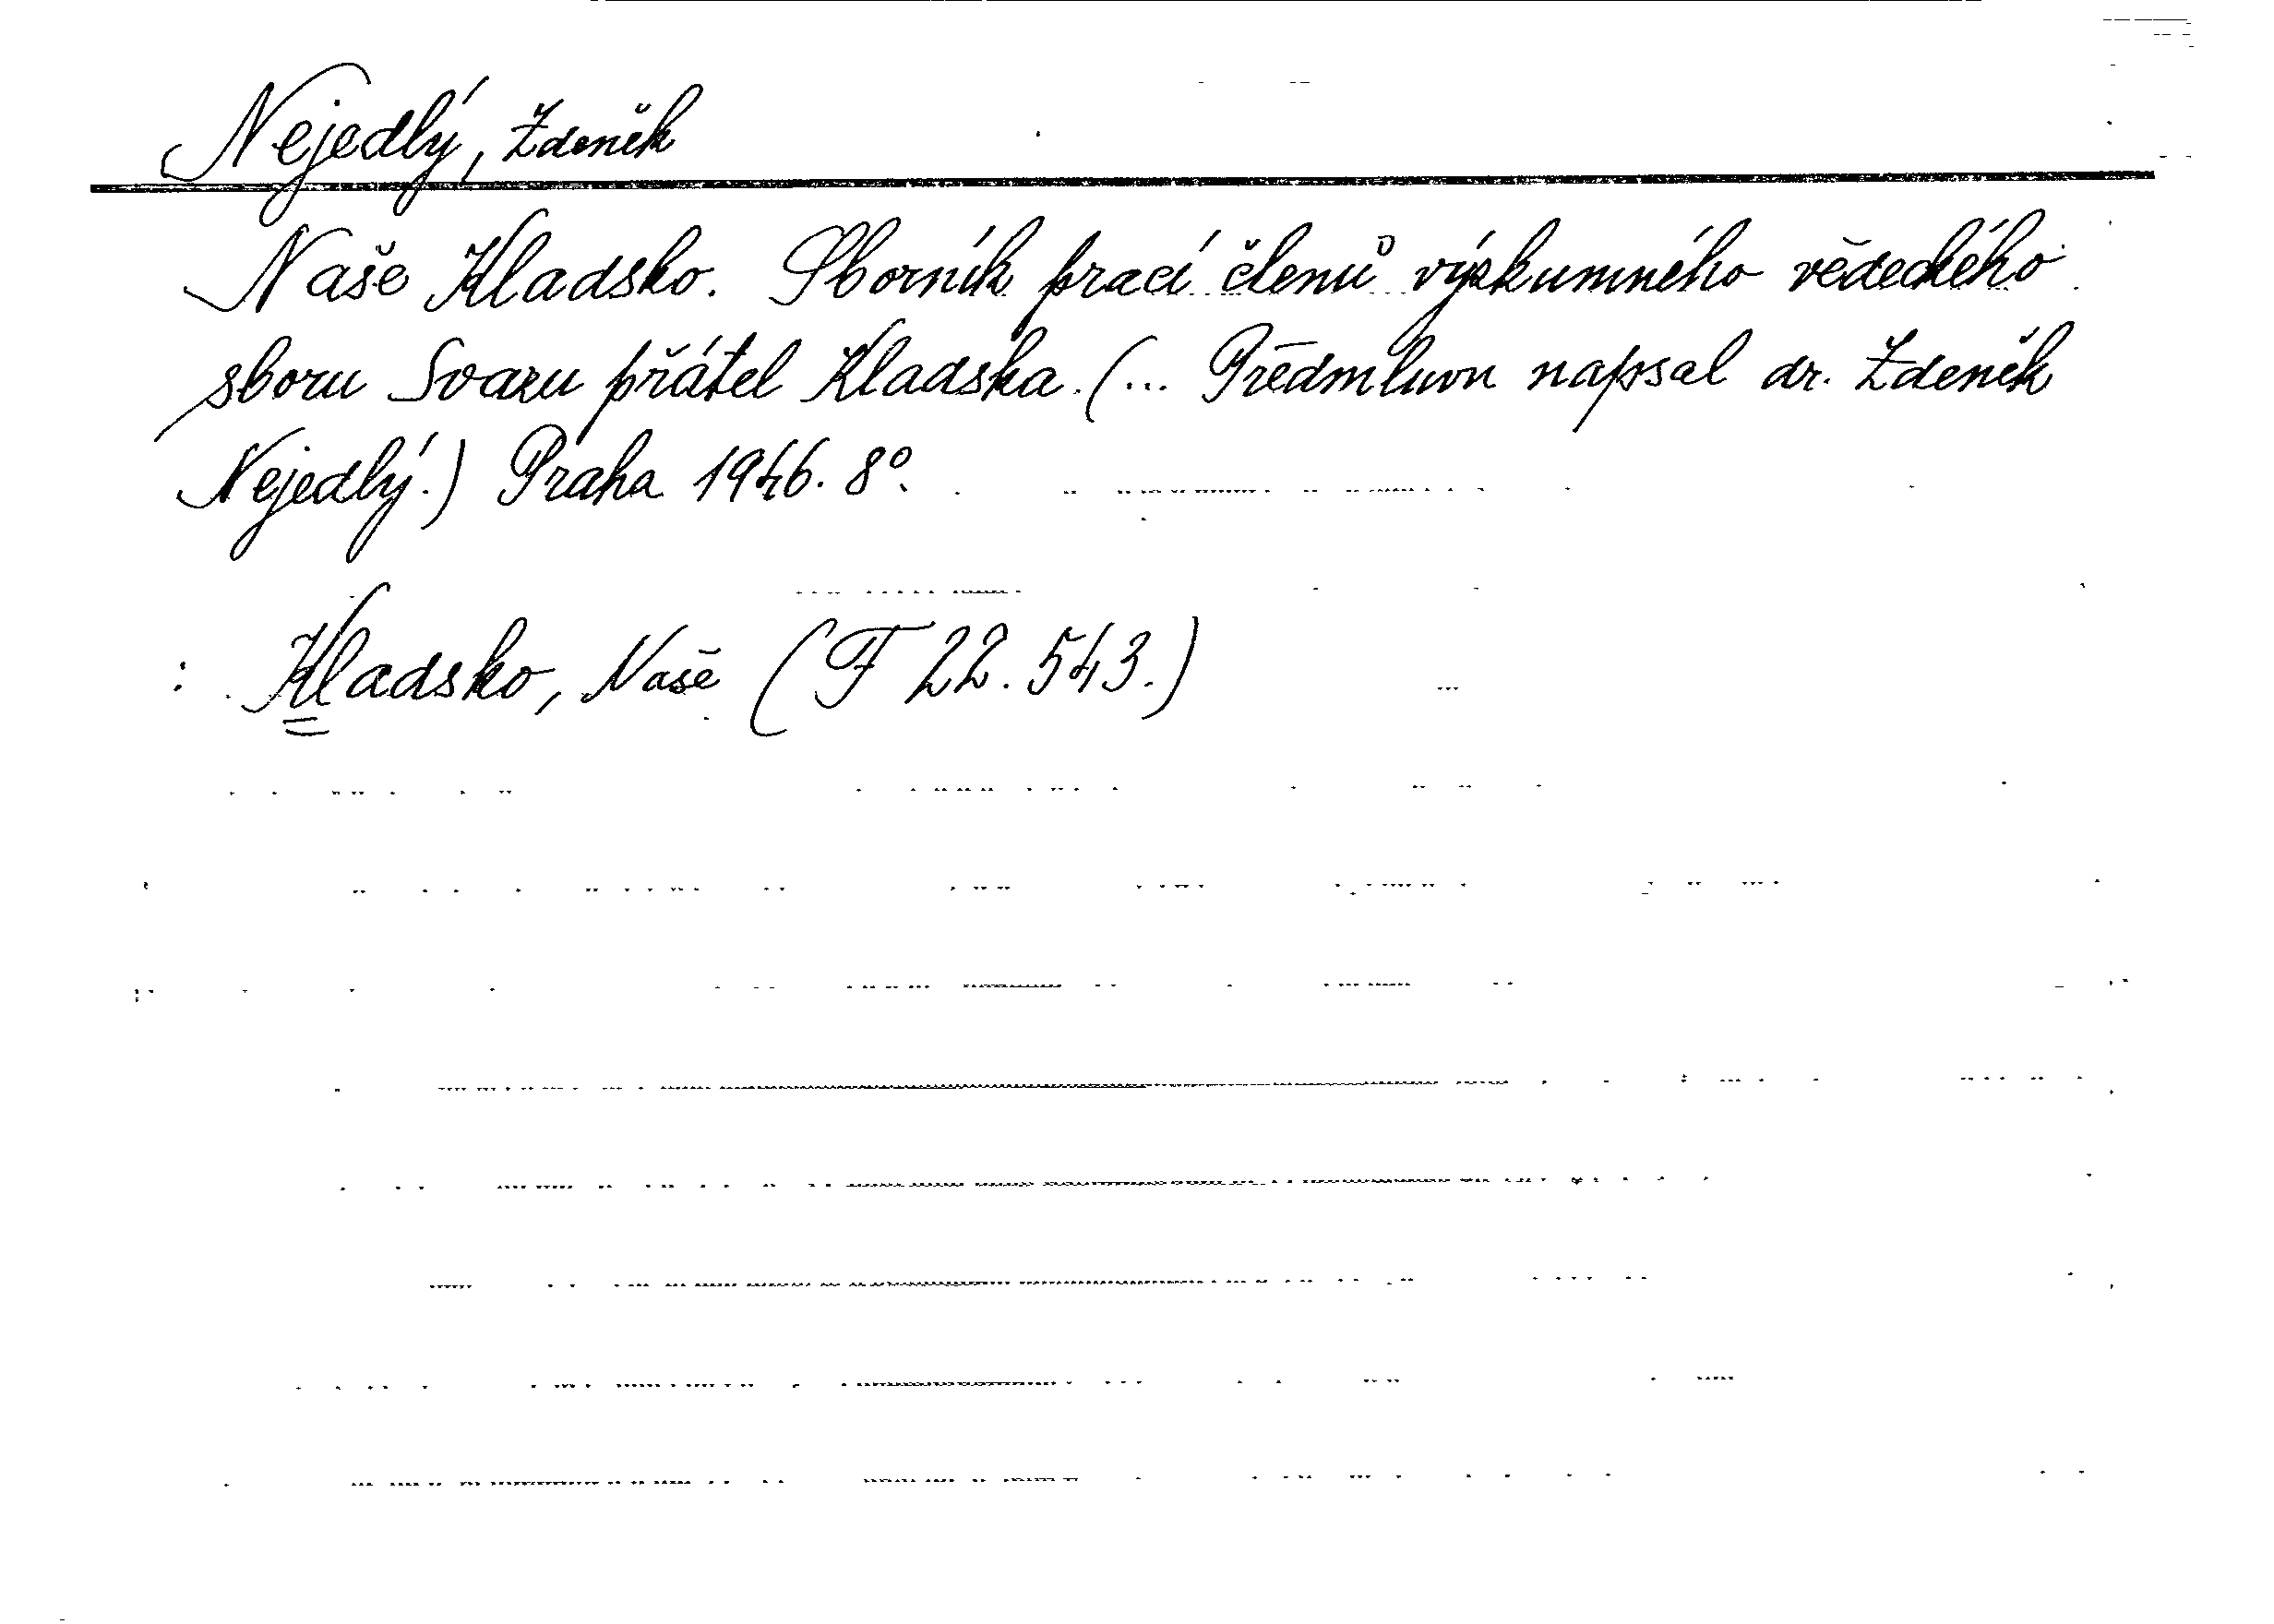 Nejedlý, Zdeněk
Naše Kladsko. Sborník prací členů výzkumného vědeckého
sboru Svazu přátel Kladska. (... Předmluvu napsal dr. Zdeněk
Nejedlý.) Praha 1946. 8°.
: Kladsko, Naše (F 22.543.)